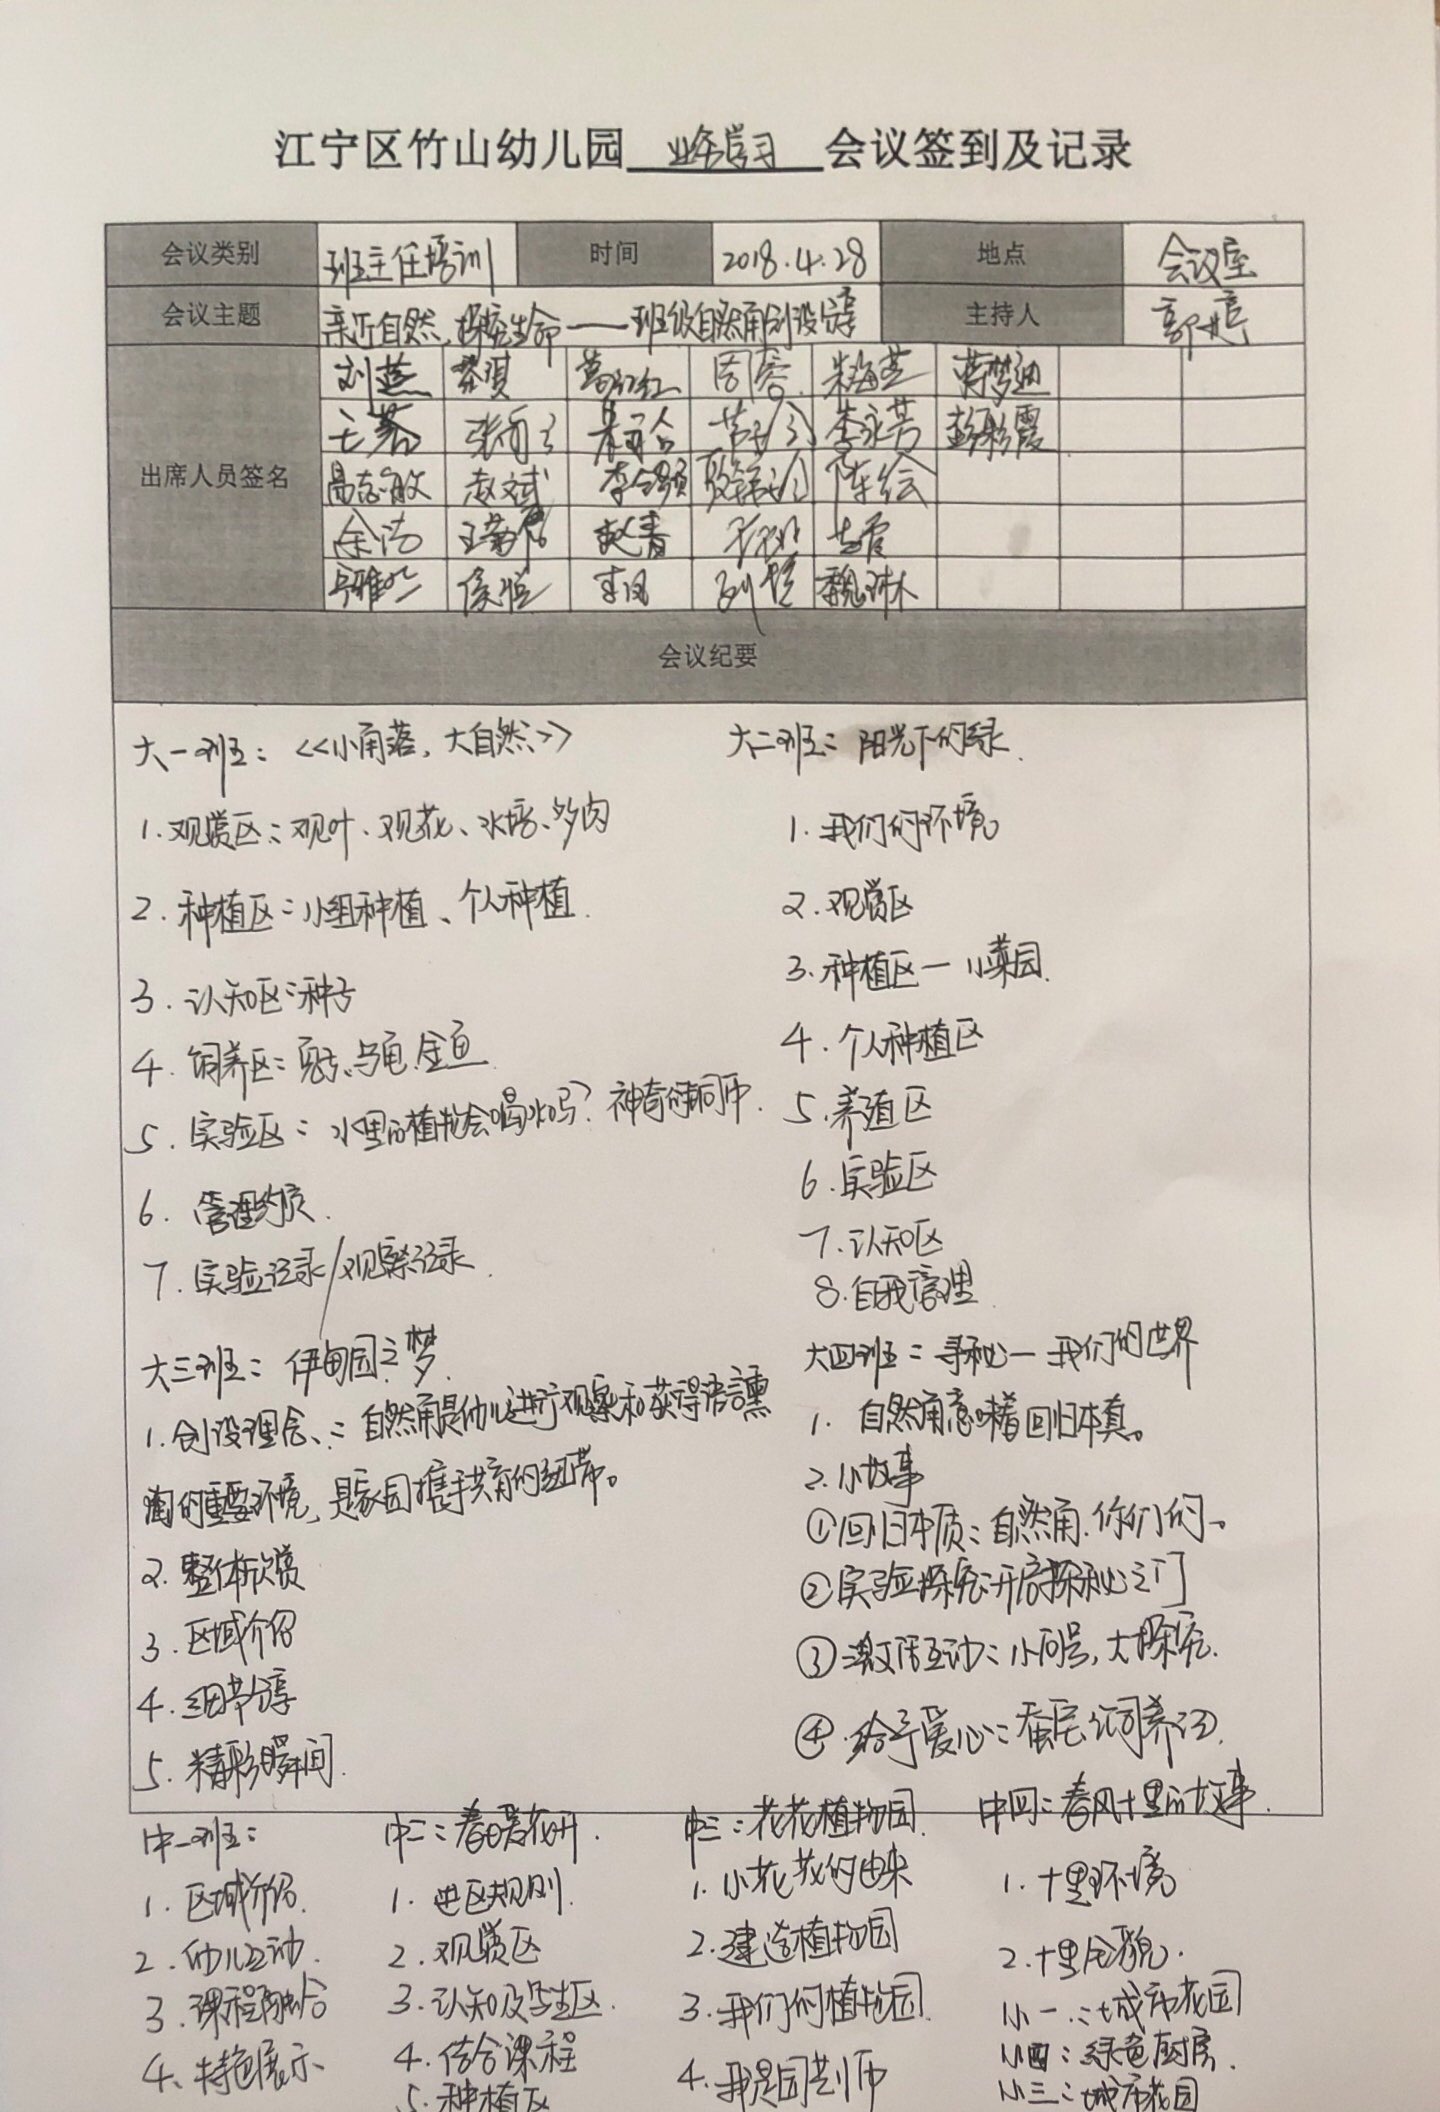 江宁区竹山幼儿园 业务学习 会议签到及记录
会议类别 班主任培训 时间 2018.4.28 地点 会议室
会议主题 亲近自然,探究生命——班级自然角创设分享 主持人 郭婷
出席人员签名
刘燕 蔡琪 葛红红 周蓉 朱海燕 蒋梦迪
王茜 李永芳 彭彩霞
赵斌 陈绘
余洁 赵青
侯恒 李凤 刘 魏琳
会议纪要
大一班:<<小角落,大自然>>
1.观赏区:观叶、观花、水培、多肉
2.种植区:小组种植、个人种植.
3.认知区:种子
4.饲养区:兔子、乌龟.金鱼
5.实验区:水里的植物会喝水吗?神奇的铜币.
6.管理约定.
7.实验记录/观察记录.
大二班:阳光下的绿.
1.我们的环境
2.观赏区
3.种植区—小菜园.
4.个人种植区
5.养殖区
6.实验区
7.认知区
8.自我管理
大三班:伊甸园之梦.
1.创设理念:自然角是幼儿进行观察和获得语言熏
陶的重要环境,是家园携手共育的纽带。
2.整体欣赏
3.区域介绍
4.细节分享
5.精彩瞬间.
大四班:寻秘—我们的世界
1.自然角意味着回归本真。
2.小故事
①回归本质:自然角.你们的。
②实验探究:开启探秘之门
③激活互动:小问号,大探究.
④给予爱心:蚕宝饲养记.
中一班:
1.区域介绍.
2.幼儿互动.
3.课程融合
4、特色展示
中二:春暖花开.
1.进区规则.
2.观赏区
3.认知及写生区.
4.结合课程
5.种植区
中三:花花植物园.
1.小花花的由来
2.建造植物园
3.我们的植物园.
4.我是园艺师
中四:春风十里的故事.
1.十里环境
2.十里全貌.
小一:城市花园
小四:绿色厨房.
小三:城市花园